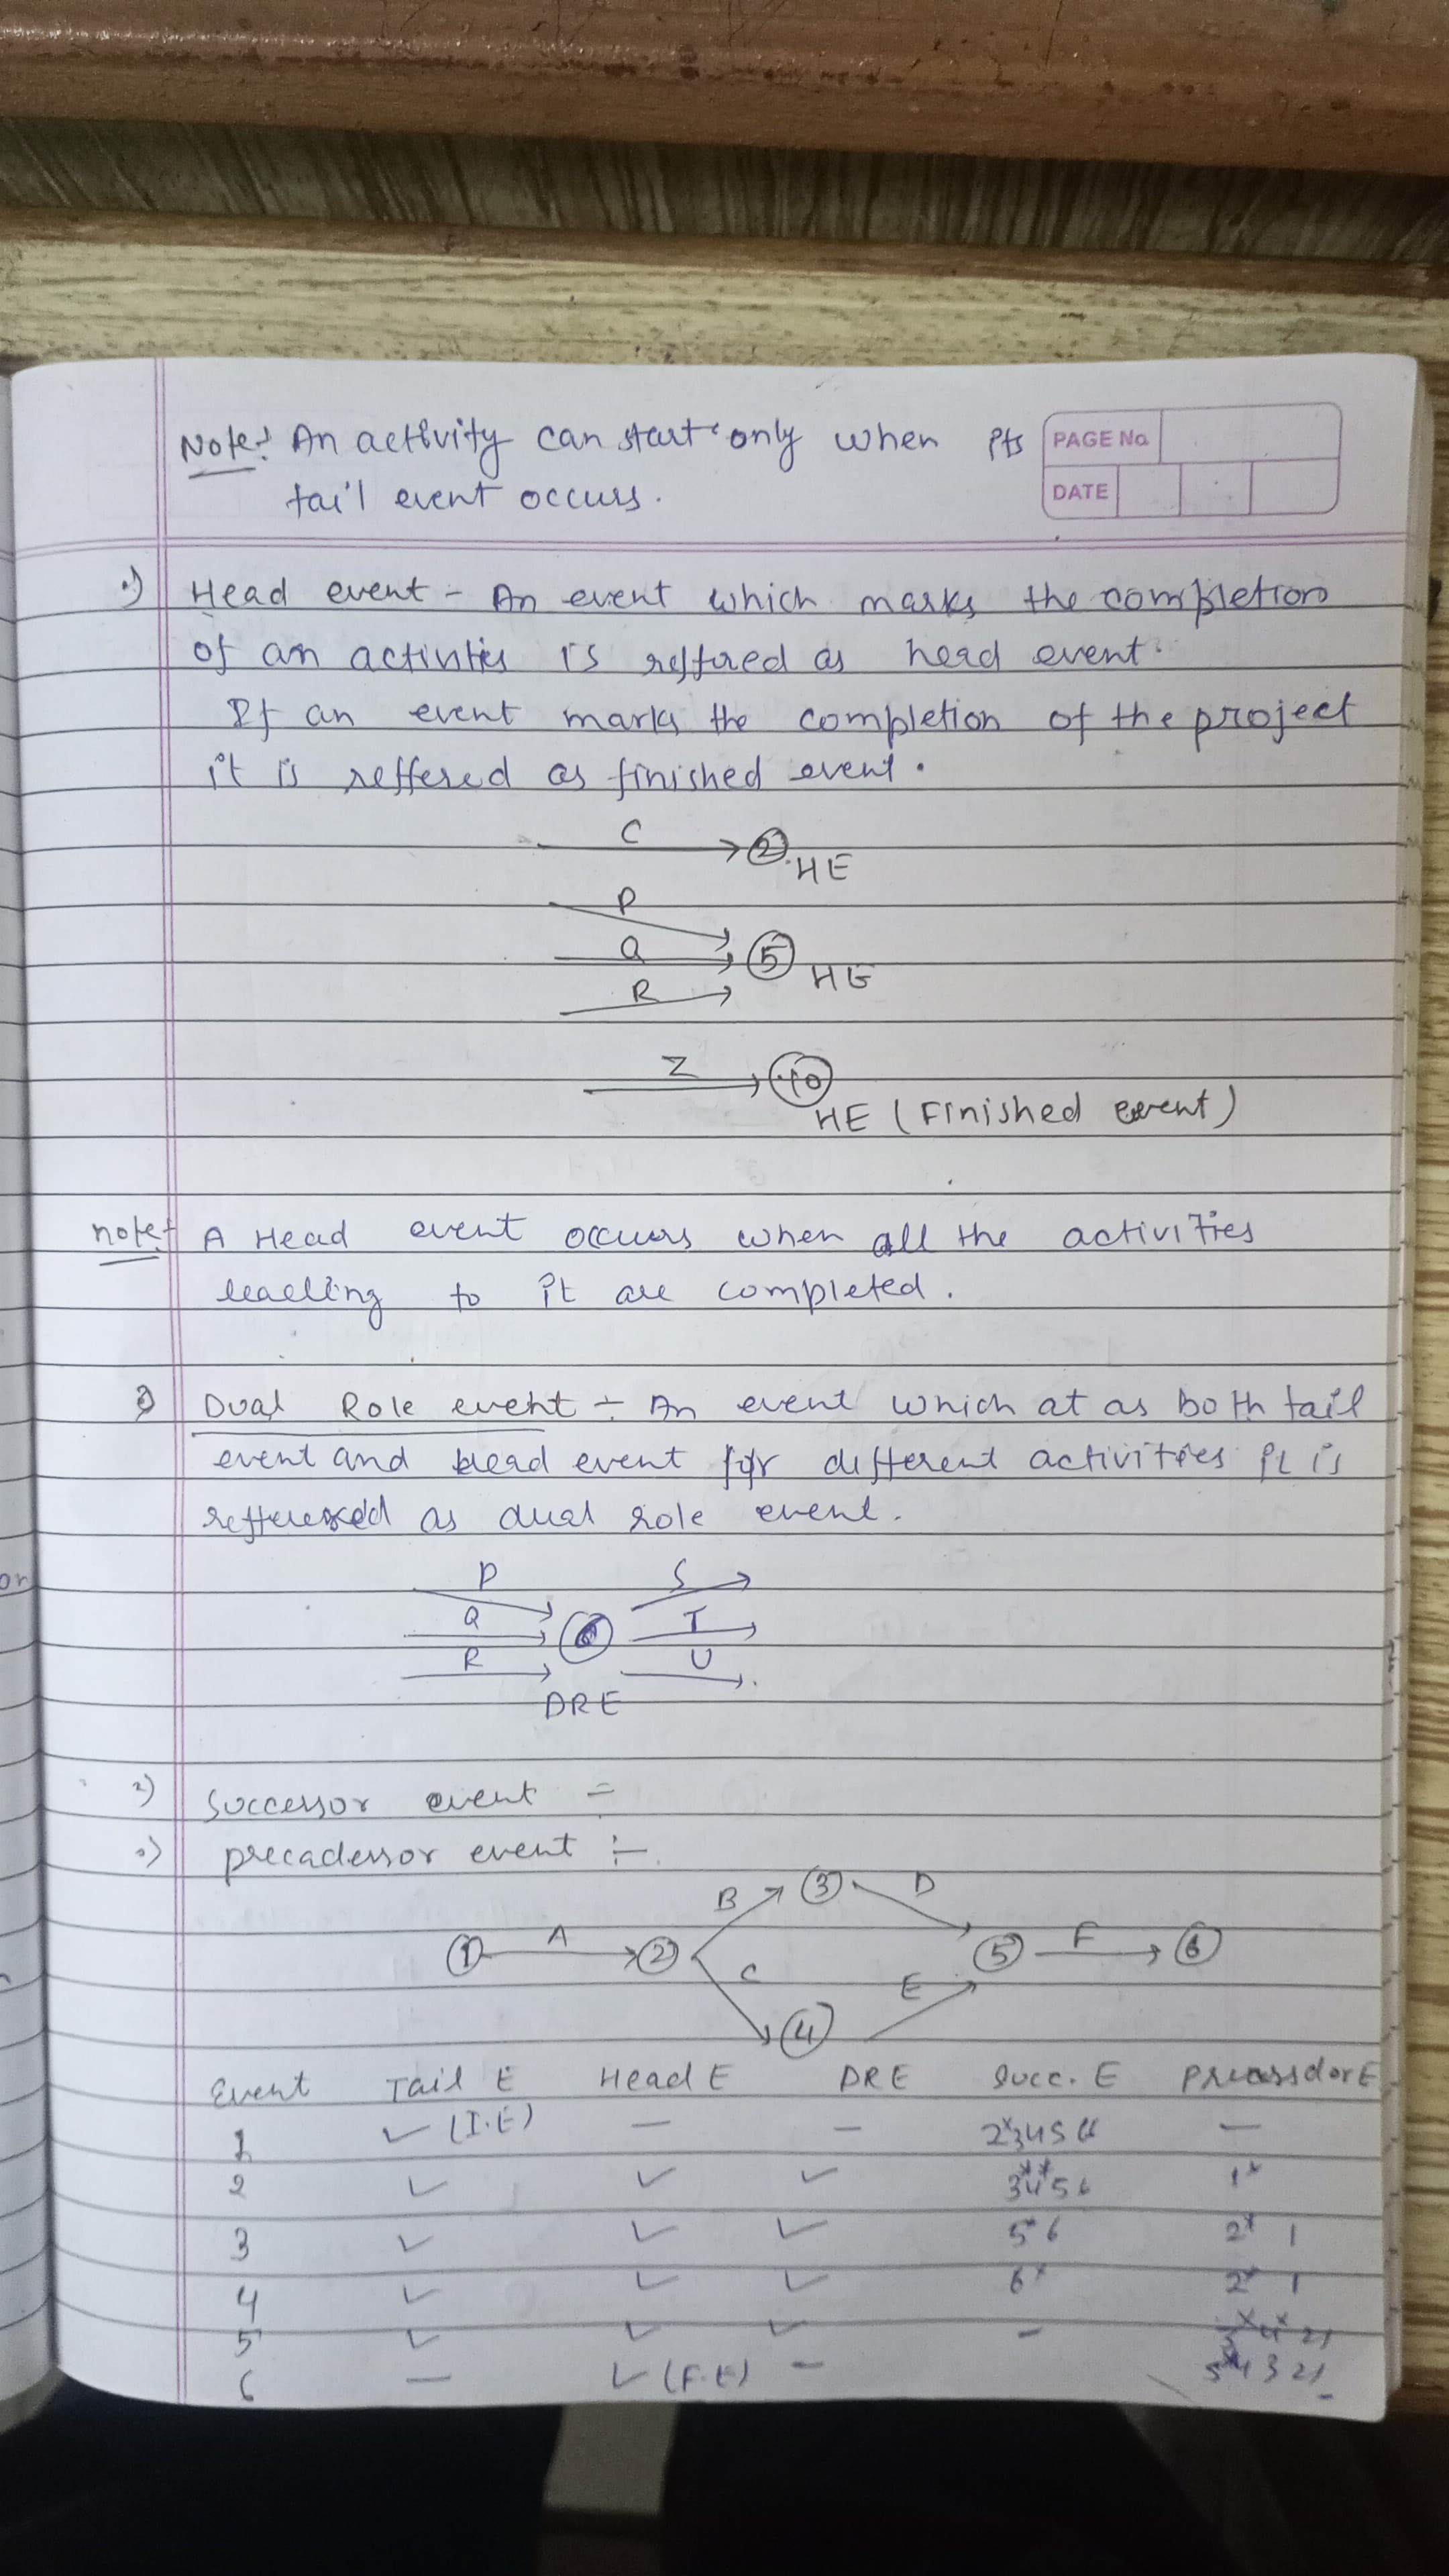 Note:- An activity can start only when its
tail event occurs.
PAGE No.
DATE
Head event - An event which marks the completion
of an activities is reffered as head event.
If an event marks the completion of the project
it is reffered as finished event.
C
2
HE
P
Q
5
R
HE
Z
10
HE (Finished event)
note:- A Head event occurs when all the activities
leading to it are completed.
Dual Role event :- An event which at as both tail
event and head event for different activities it is
reffereed as dual role event.
P S
Q 6 T
R U
DRE
Successor event =
precadessor event :-
B 3 D
1 A 2 5 F 6
C E
4
Event Tail E Head E DRE Succ. E E
1 ✓ (I.E) — — 2* 3 4 5 6 —
2 ✓ ✓ ✓ 3* 4* 5 6 1*
3 ✓ ✓ ✓ 5* 6 2* 1
4 ✓ ✓ ✓ 6* 2* 1
5 ✓ ✓ ✓ - 3* 4* 2 1
6 — ✓ (F.E) — 5* 4 3 2 1